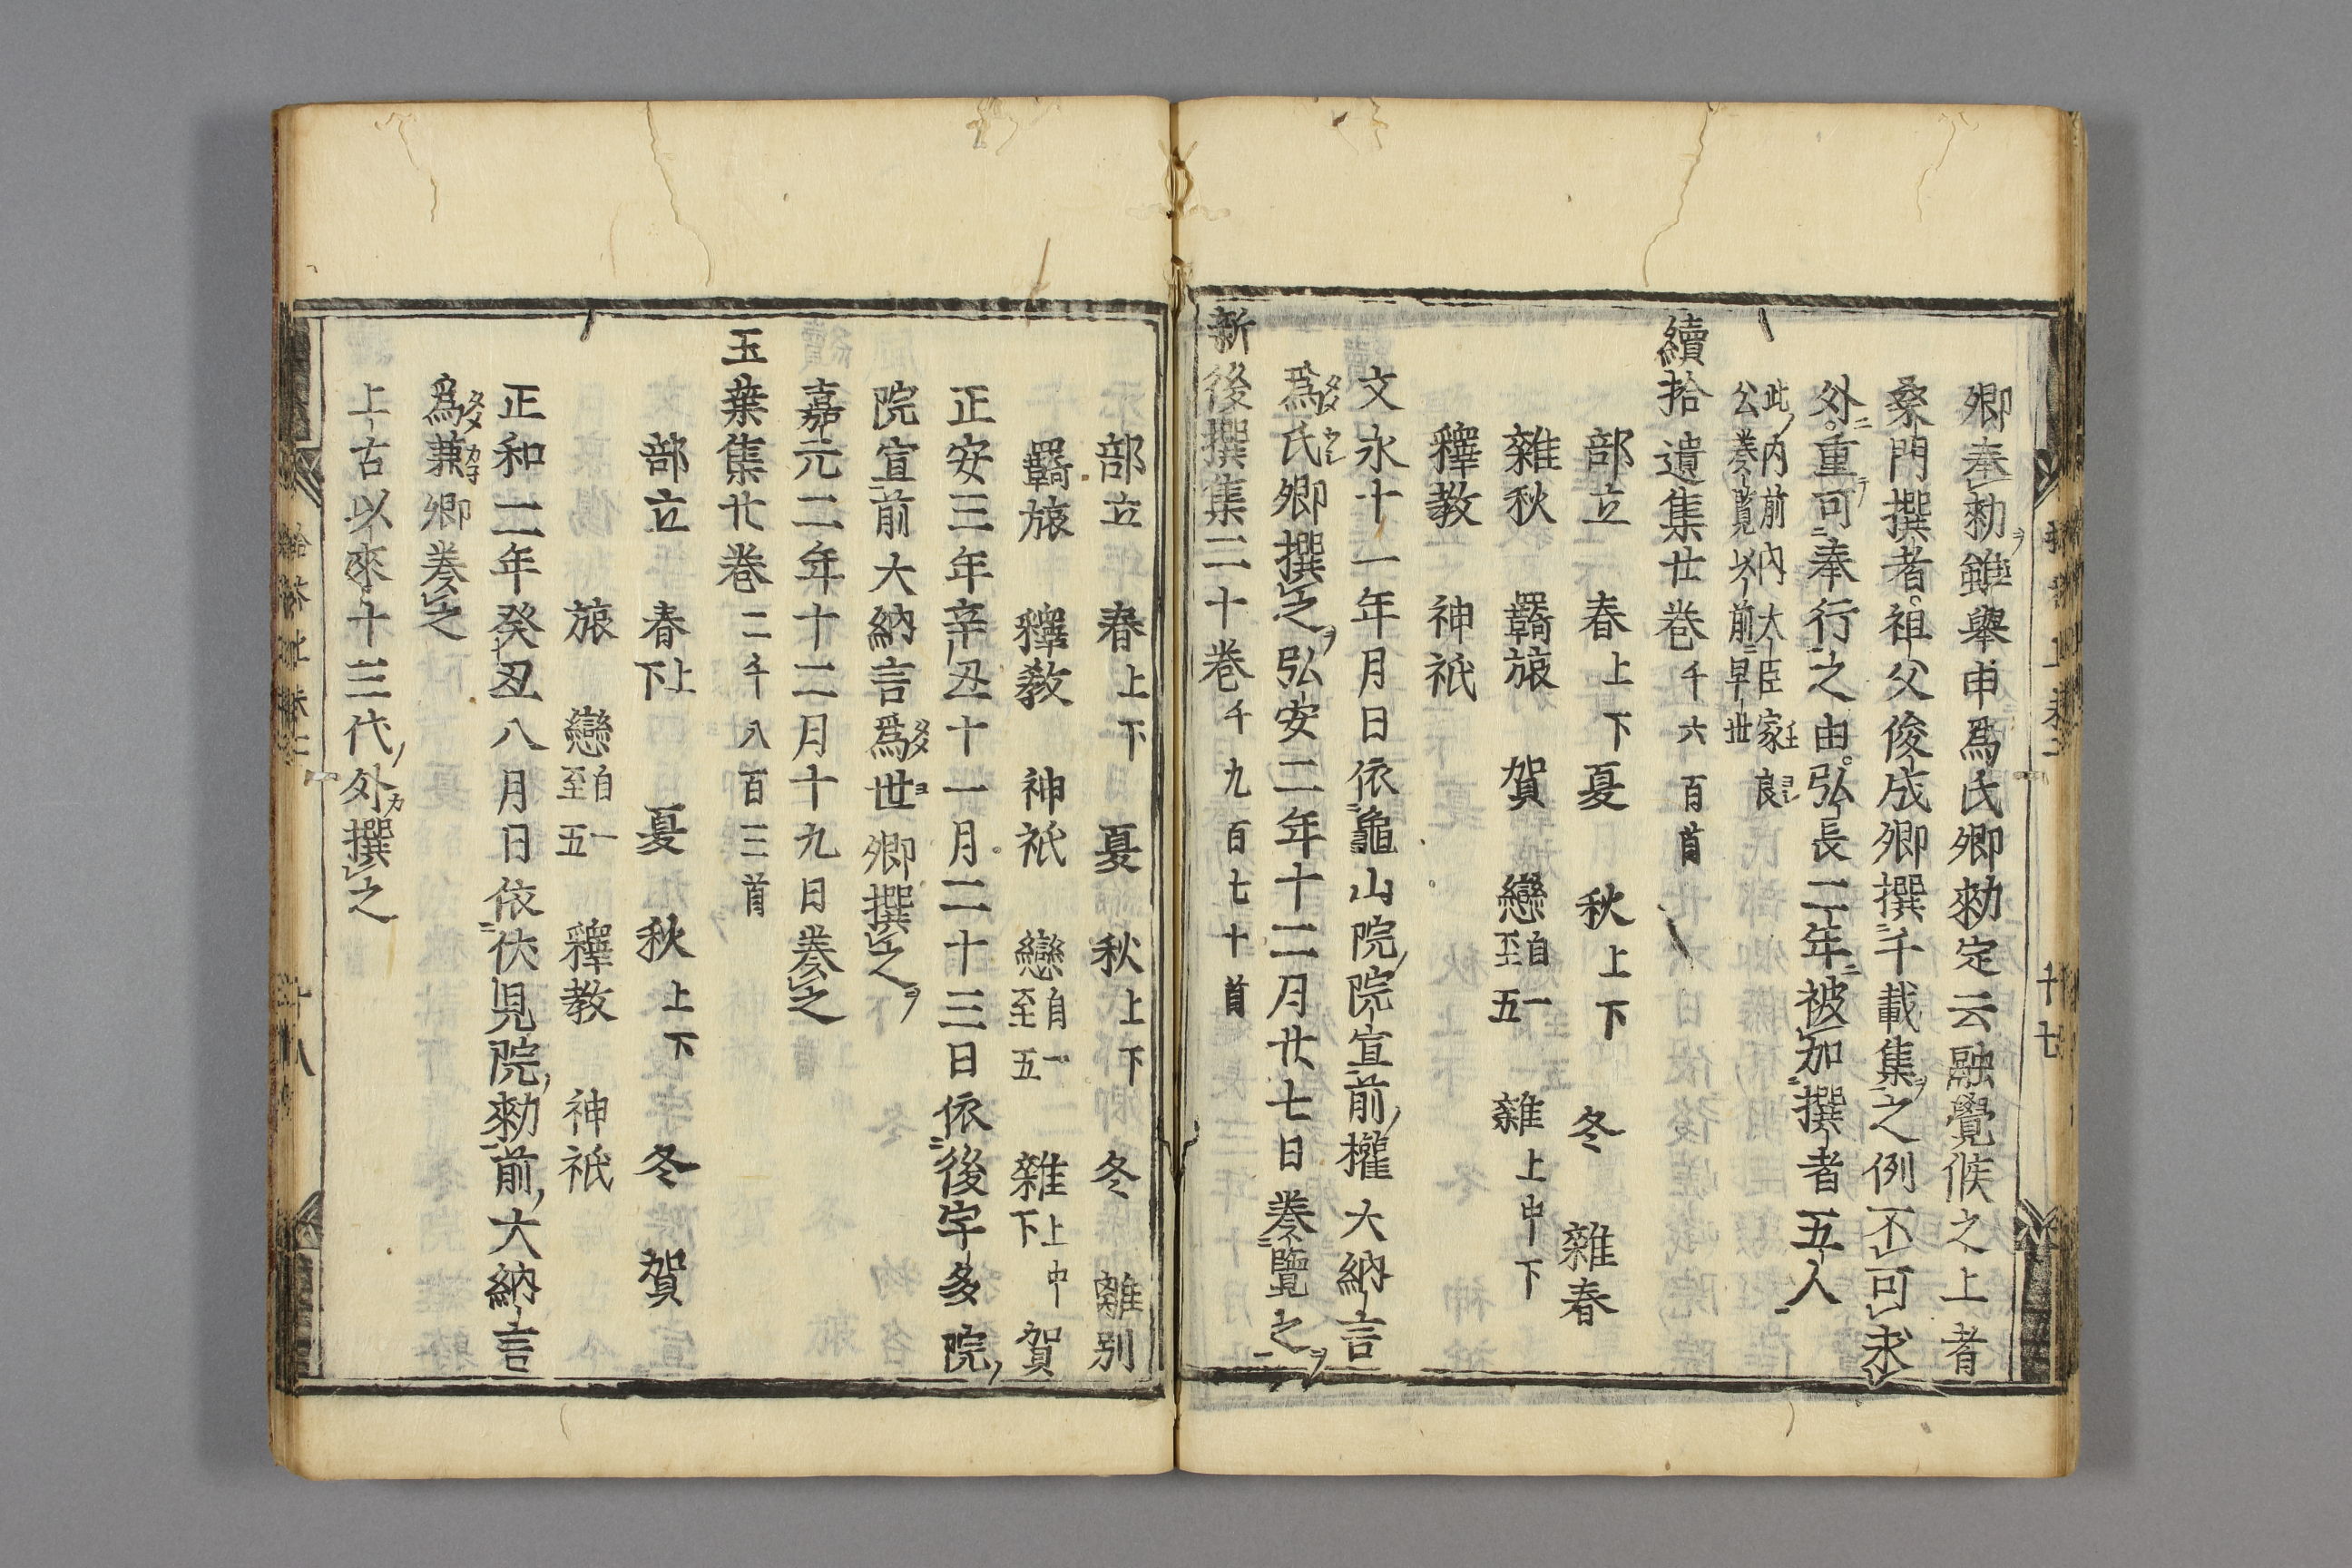 卿奉勅雖擧申爲氏卿勅定云融覺候之上者
桑門撰者祖父俊成卿撰千載集之例不可求
外重可奉行之由弘長二年被加撰者五人
此内前内大臣家良
公奏覽以前早世
續拾遺集廿卷千六百首
部立　春上下　夏　秋上下　冬　雜春
雜秋　羇旅　賀　戀自一至五　雜上中下
釋教　神祇
文永十一年月日依龜山院院宣前權大納言
爲氏卿撰之弘安二年十二月廿七日奏覽之
新後撰集二十卷千九百七十首
部立　春上下　夏　秋上下　冬　離別
羇旅　釋教　神祇　戀自一至五　雜上中下　賀
正安三年辛丑十一月二十三日依後宇多院
院宣前大納言爲世卿撰之
嘉元二年十二月十九日奏之
玉葉集廿卷二千八百三首
部立　春上下　夏　秋上下　冬　賀
旅　戀自一至五　釋教　神祇
正和二年癸丑八月日依伏見院勅前大納言
爲兼卿奏之
上古以來十三代外撰之
十七
十八